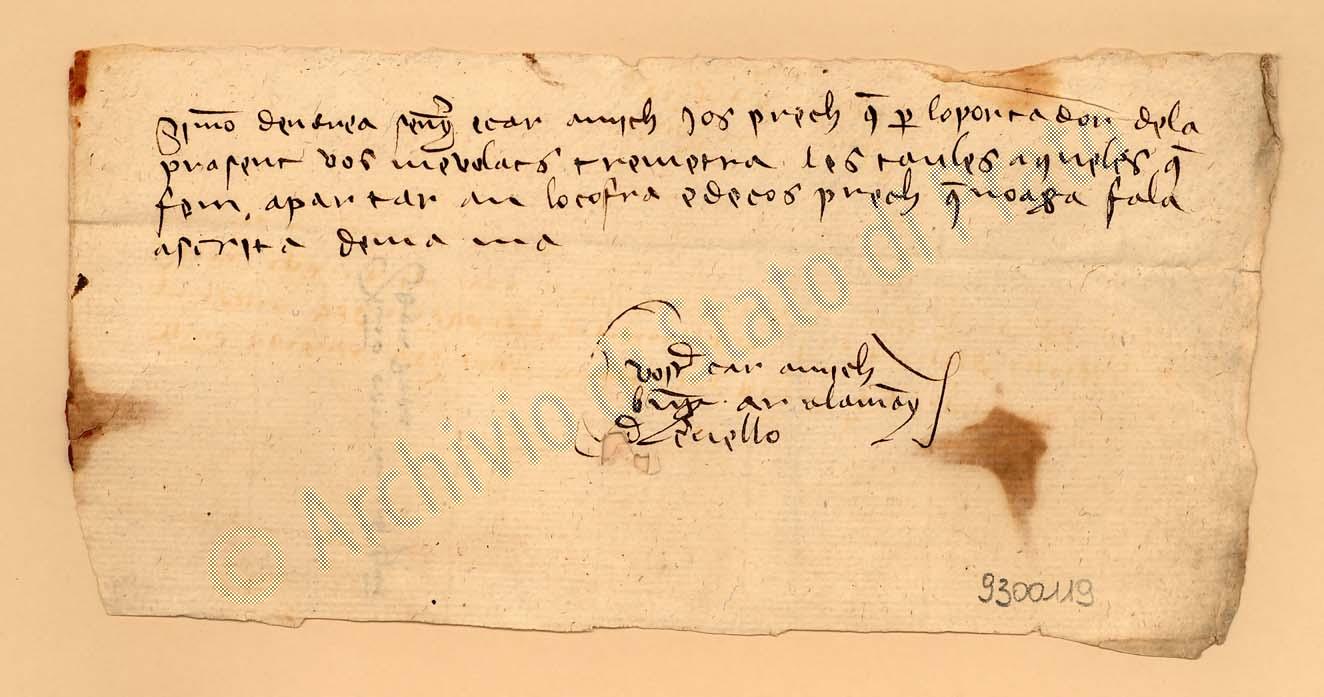 Simo dendrea seny ecar amich jos prech q̄ p̱ loportador dela
prasent vos me vulats tremetra les taules aqueles q̄
fem apartar an locofra edecos prech q̄ noaga fala
ascrita de ma ma
vostr̄ car amich
alamāy
© Archivio di Stato di Prato
9300119